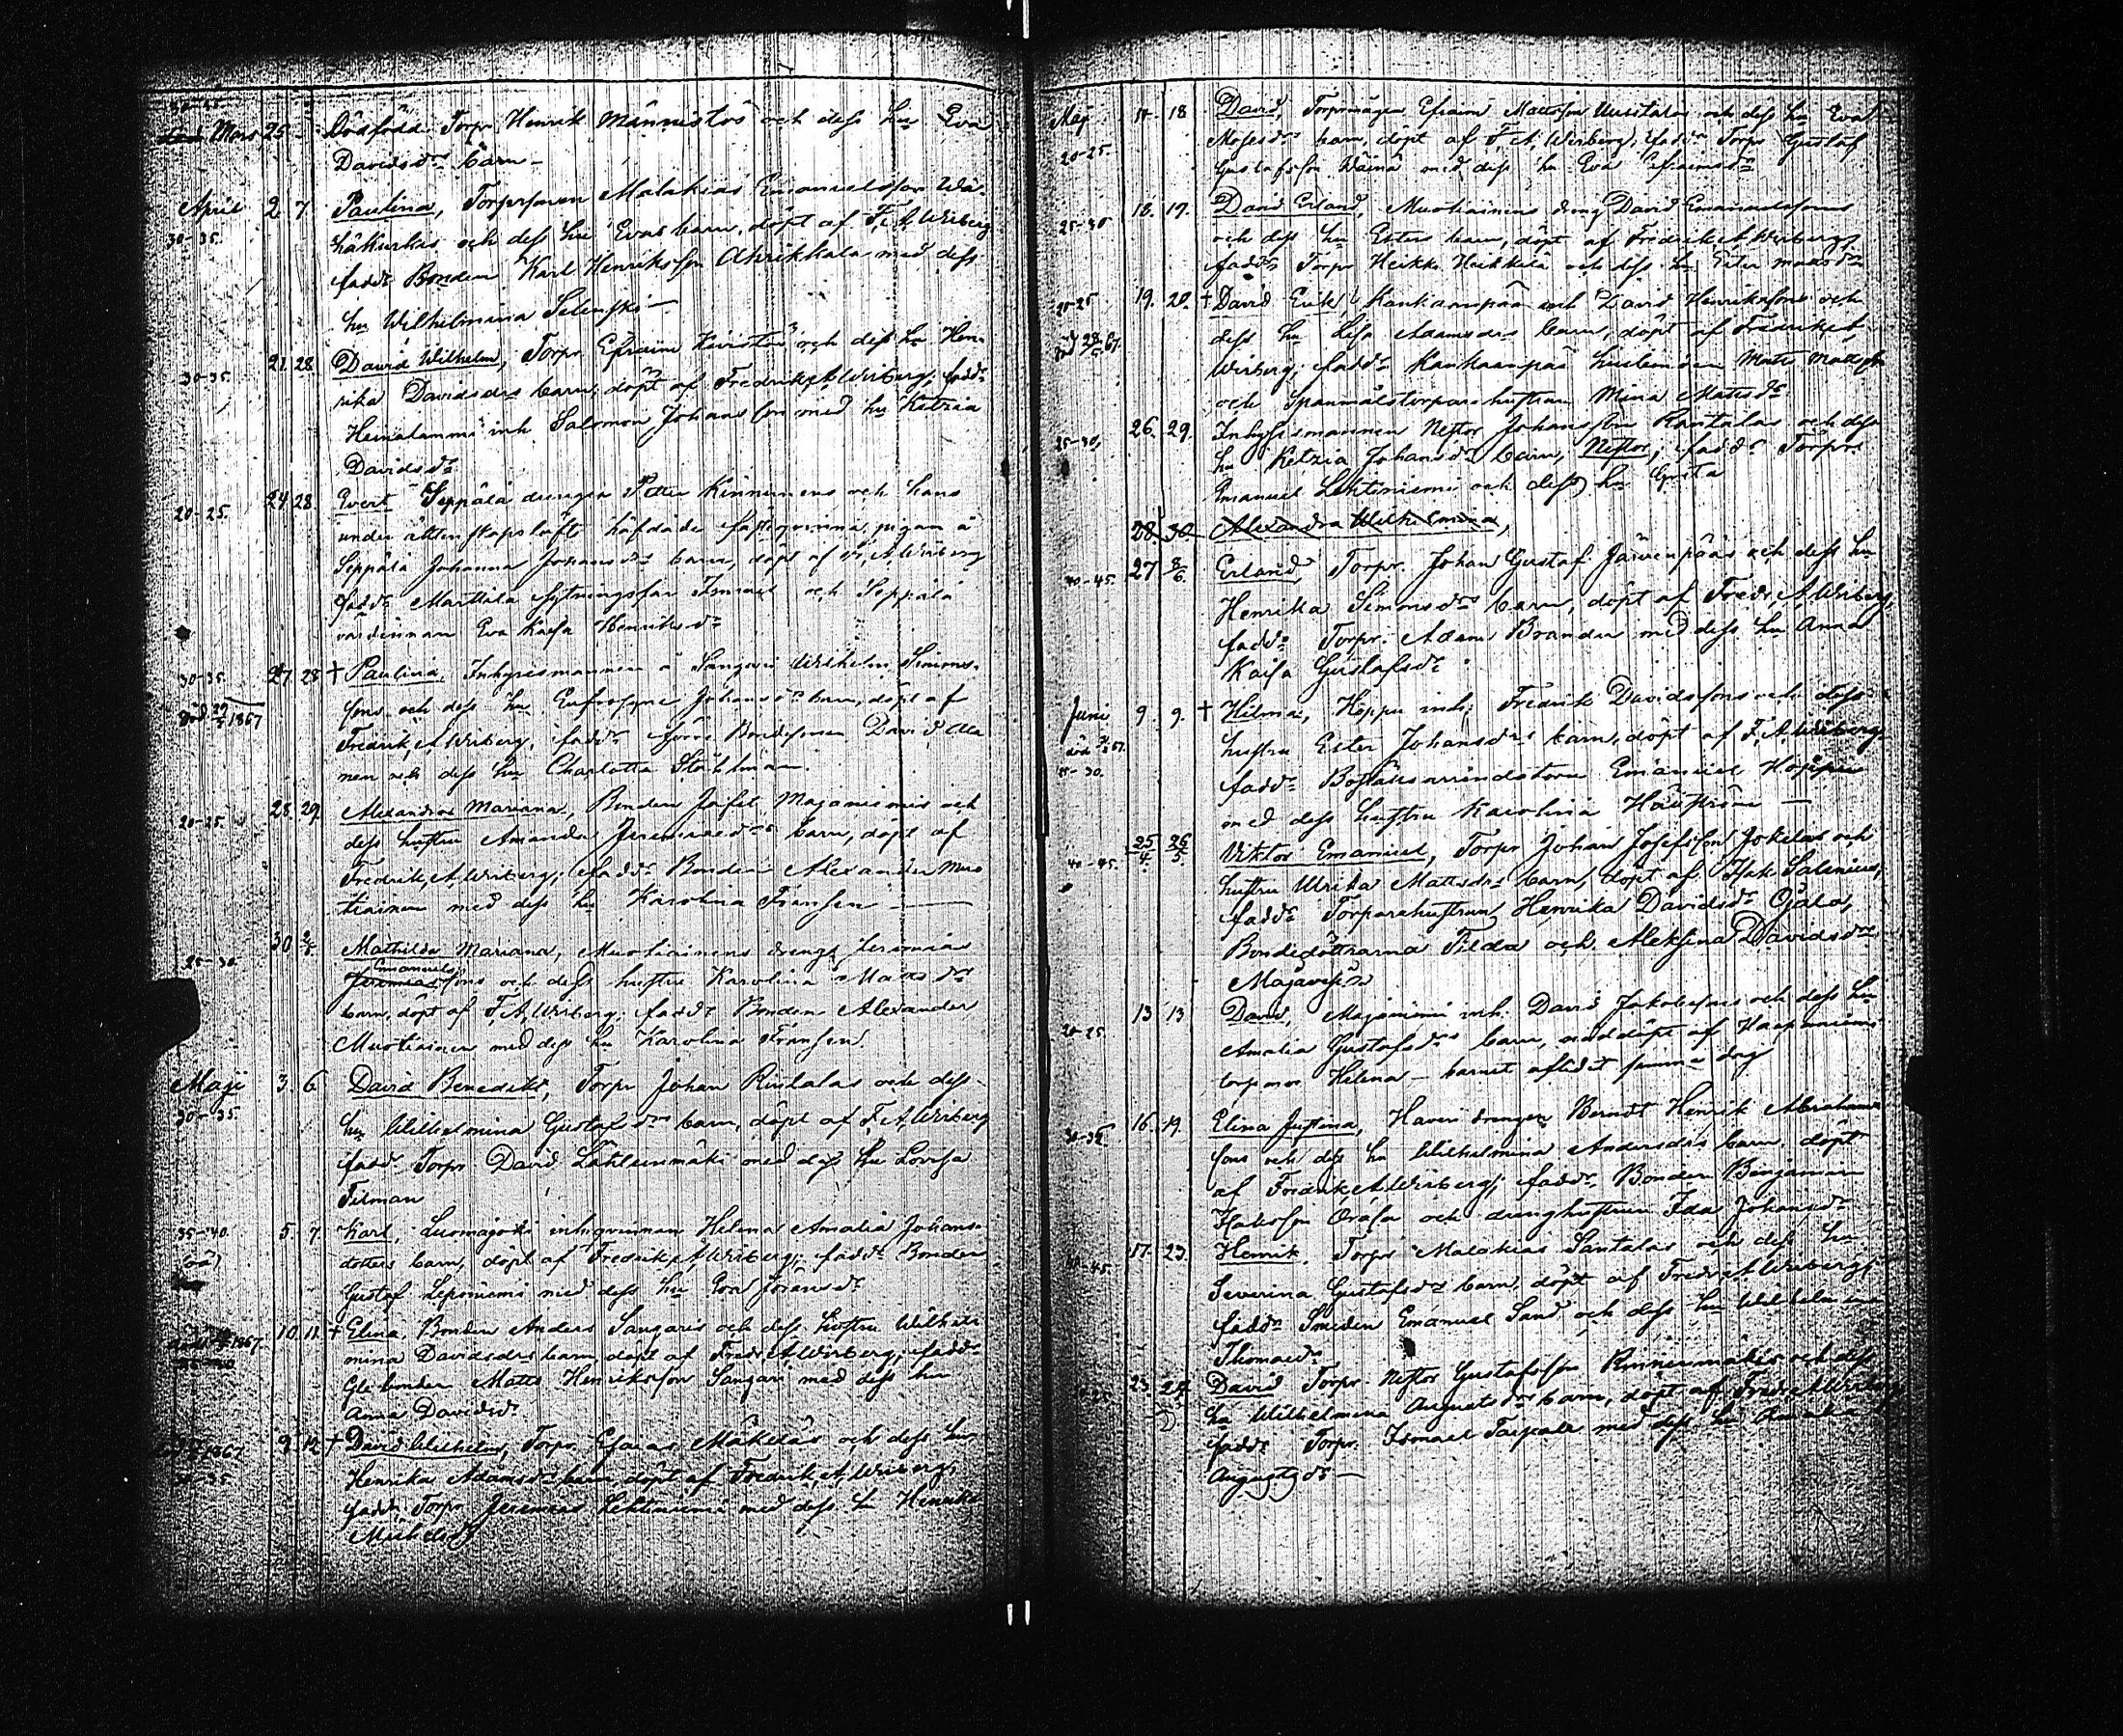 30-35.
Mars 25 - Dödfödd Torp. Henrik Männistös och dess hu Eva
Davidsdrs barn -
April 2. 7 Paulina, Torparsonen Malakias Emanuelsson
30-35. och dess hu Evas barn, döpt af F. A. Wiberg
fadd. Bonden Karl Henriksson Ahrikkala med dess
hu Wilhelmina
30-35. 21. 28. David Wilhelm, Torpr Efraim Kivistös och dess hu Hen-
rika Davidsdrs barn, döpt af Fredrik A. Wiberg; fadd.
Heinalammi inh. Salomon Johansson med hu Ketzia
Davidsdr
20-25. 24. 28. Evert Seppälä drengen Petter Kinnunens och hans
under äktenskapslöfte häfdade fästeqvinna pigan å
Seppälä Johanna Johansdrs barn, döpt af F. A. Wiberg
fadd. Marttila sytningsfar Ismael och Seppälä
värdinnan Eva Kaisa Henriksdr
30-35. 27 28 + Paulina, Inhysesmannen å Sangari Wilhelm Simons-
död 1867 sons och dess hu Eufrosyne Johansdrs barn, döpt af
Fredrik A. Wiberg, fadd. förre Bondesonen David
och dess hu Charlotta Ståhlman.
20-25. 28. 29. Alexandra Mariana, Bonden Jafet Majaniemis och
dess hustru Amanda Jeremiaedrs barn, döpt af
Fredrik A. Wiberg; fadd. Bonden Alexander Muo
tiainen med dess hu Karolina Fransen
25-30. 30 Mathilda Mariana, Muotiainens drengs Jeremias
Emanuels
Jeremiassons och dess hustru Karolina Mattsdrs
barn, döpt af F. A. Wiberg; fadd. Bonden Alexander
Muotiainen med dess hu Karolina Fransen.
Maji 3. 6 David Benedikt, Torpr Johan Rintalas och dess
30-35. hu Wilhelmina Gustafsdrs barn, döpt af F. A. Wiberg
fadd. Torpr David Lähteenmäki med dess hu Lovisa
Tilman
35-40. 5. 7. Karl, Luomajoki inhqvinnan Helena Amalia Johans-
(oä) dotters barn, döpt af Fredrik A. Wiberg; fadd. Bonden
Gustaf Leponiemi med dess hu Eva Göransdr
1867. 10. 11. + Elina Bonden Anders Sangaris och dess hustru Wilhel-
mina Davidsdrs barn, döpt af Fredr. A. Wiberg; fadd.
Gle bonden Matts Henriksson Sangari med dess hu
Anna Davidsdr
1867 9. 12. + David Wilhelm, Torpr Esaias Mäkeläs och dess hu
30-35. Henrika Adamsdrs barn, döpt af Fredrik A. Wiberg,
fadd. Torpr Jeremias Lehtiniemi med dess hu Henrika
Michelsdr
Maj 17. 18 David, Torparmågen Efraim Mattsson Uusitalos och dess hu Eva
20-25. Mosesdrs barn, döpt af F. A. Wiberg; fadd. Torpr Gustaf
Gustafsson Wäinä med dess hu Eva Efraimsdr
25-30 18. 19. David Erland, Muotiainens dreng David Emanuelssons
och dess hu Esters barn, döpt af Fredrik A. Wiberg,
fadd. Torpr Heikki Heikkilä och dess hu Ester Mattsdr
20-25 19. 20. + David Erik, Kankaanpää inh David Henrikssons och
67. dess hu Lisa Adamsdrs barn, döpt af Fredrik A.
Wiberg; fadd. Kankaanpää husbonden Matts Mattsson
och Spanmålstorparehustrun Mina Mattsdr
25-30. 26. 29. Inhysesmannen Nestor Johansson Rantalas och dess
hu Ketzia Johansdrs barn, Nestor; fadd. Torpr.
Emanuel Lehtiniemi och dess hu Greta
28 30 Alexandra Wilhelmina,
40-45. 27 8/6. Erland, Torpr. Johan Gustaf Järvenpääs och dess hu
Henrika Simonsdrs barn, döpt af Fredr. A. Wiberg,
fadd. Torpr. Adam Brander med dess hu Anna
Kaisa Gustafsdr
Juni 9. 9. + Hilma, Hoppu inh. Fredrik Davidssons och dess
död 67. hustru Ester Johansdrs barn, döpt af F. A. Wiberg,
30. fadd. Boställsarrendatorn Emanuel Hoppu
med dess hustru Karolina
40-45. 25/4. 26/5 Viktor Emanuel, Torpr Johan Josefsson Jokelas och
hustru Ulrika Mattsdrs barn, döpt af Isak Salenius,
fadd. Torparehustrun Henrika Davidsdr Ojala,
Bondedöttrarna Tilda och Aleksina Davidsdr
20-25. 13 13 David, Majaniemi inh. David Jakobssons och dess hu
Amalia Gustafsdrs barn, nöddöpt af Haapaniemi
Helena - barnet aflidet samma dag
30-35 16. 19. Elina Justina, Haveri drengen Berndt Henrik Abrahams
sons och dess hu Wilhelmina Andersdrs barn, döpt
af Fredrik A. Wiberg; fadd. Bonden Benjamin
Isaksson Orasa och drenghustrun Ida Johansdr
40-45 17. 23. Henrik, Torpr Malakias Santalas och dess hu
Severina Gustafsdrs barn, döpt af Fredr. A. Wiberg,
fadd. Smeden Emanuel Sand och dess hu Wilhelmina
Thomasdr
23. 24 David Torpr Nestor Gustafsson Rinnenmäkis och dess
hu Wilhelmina Augustsdrs barn, döpt af Fredr. A. Wiberg
fadd. Torpr. Ismael Taipale med dess hu Amanda
Augustsdr -